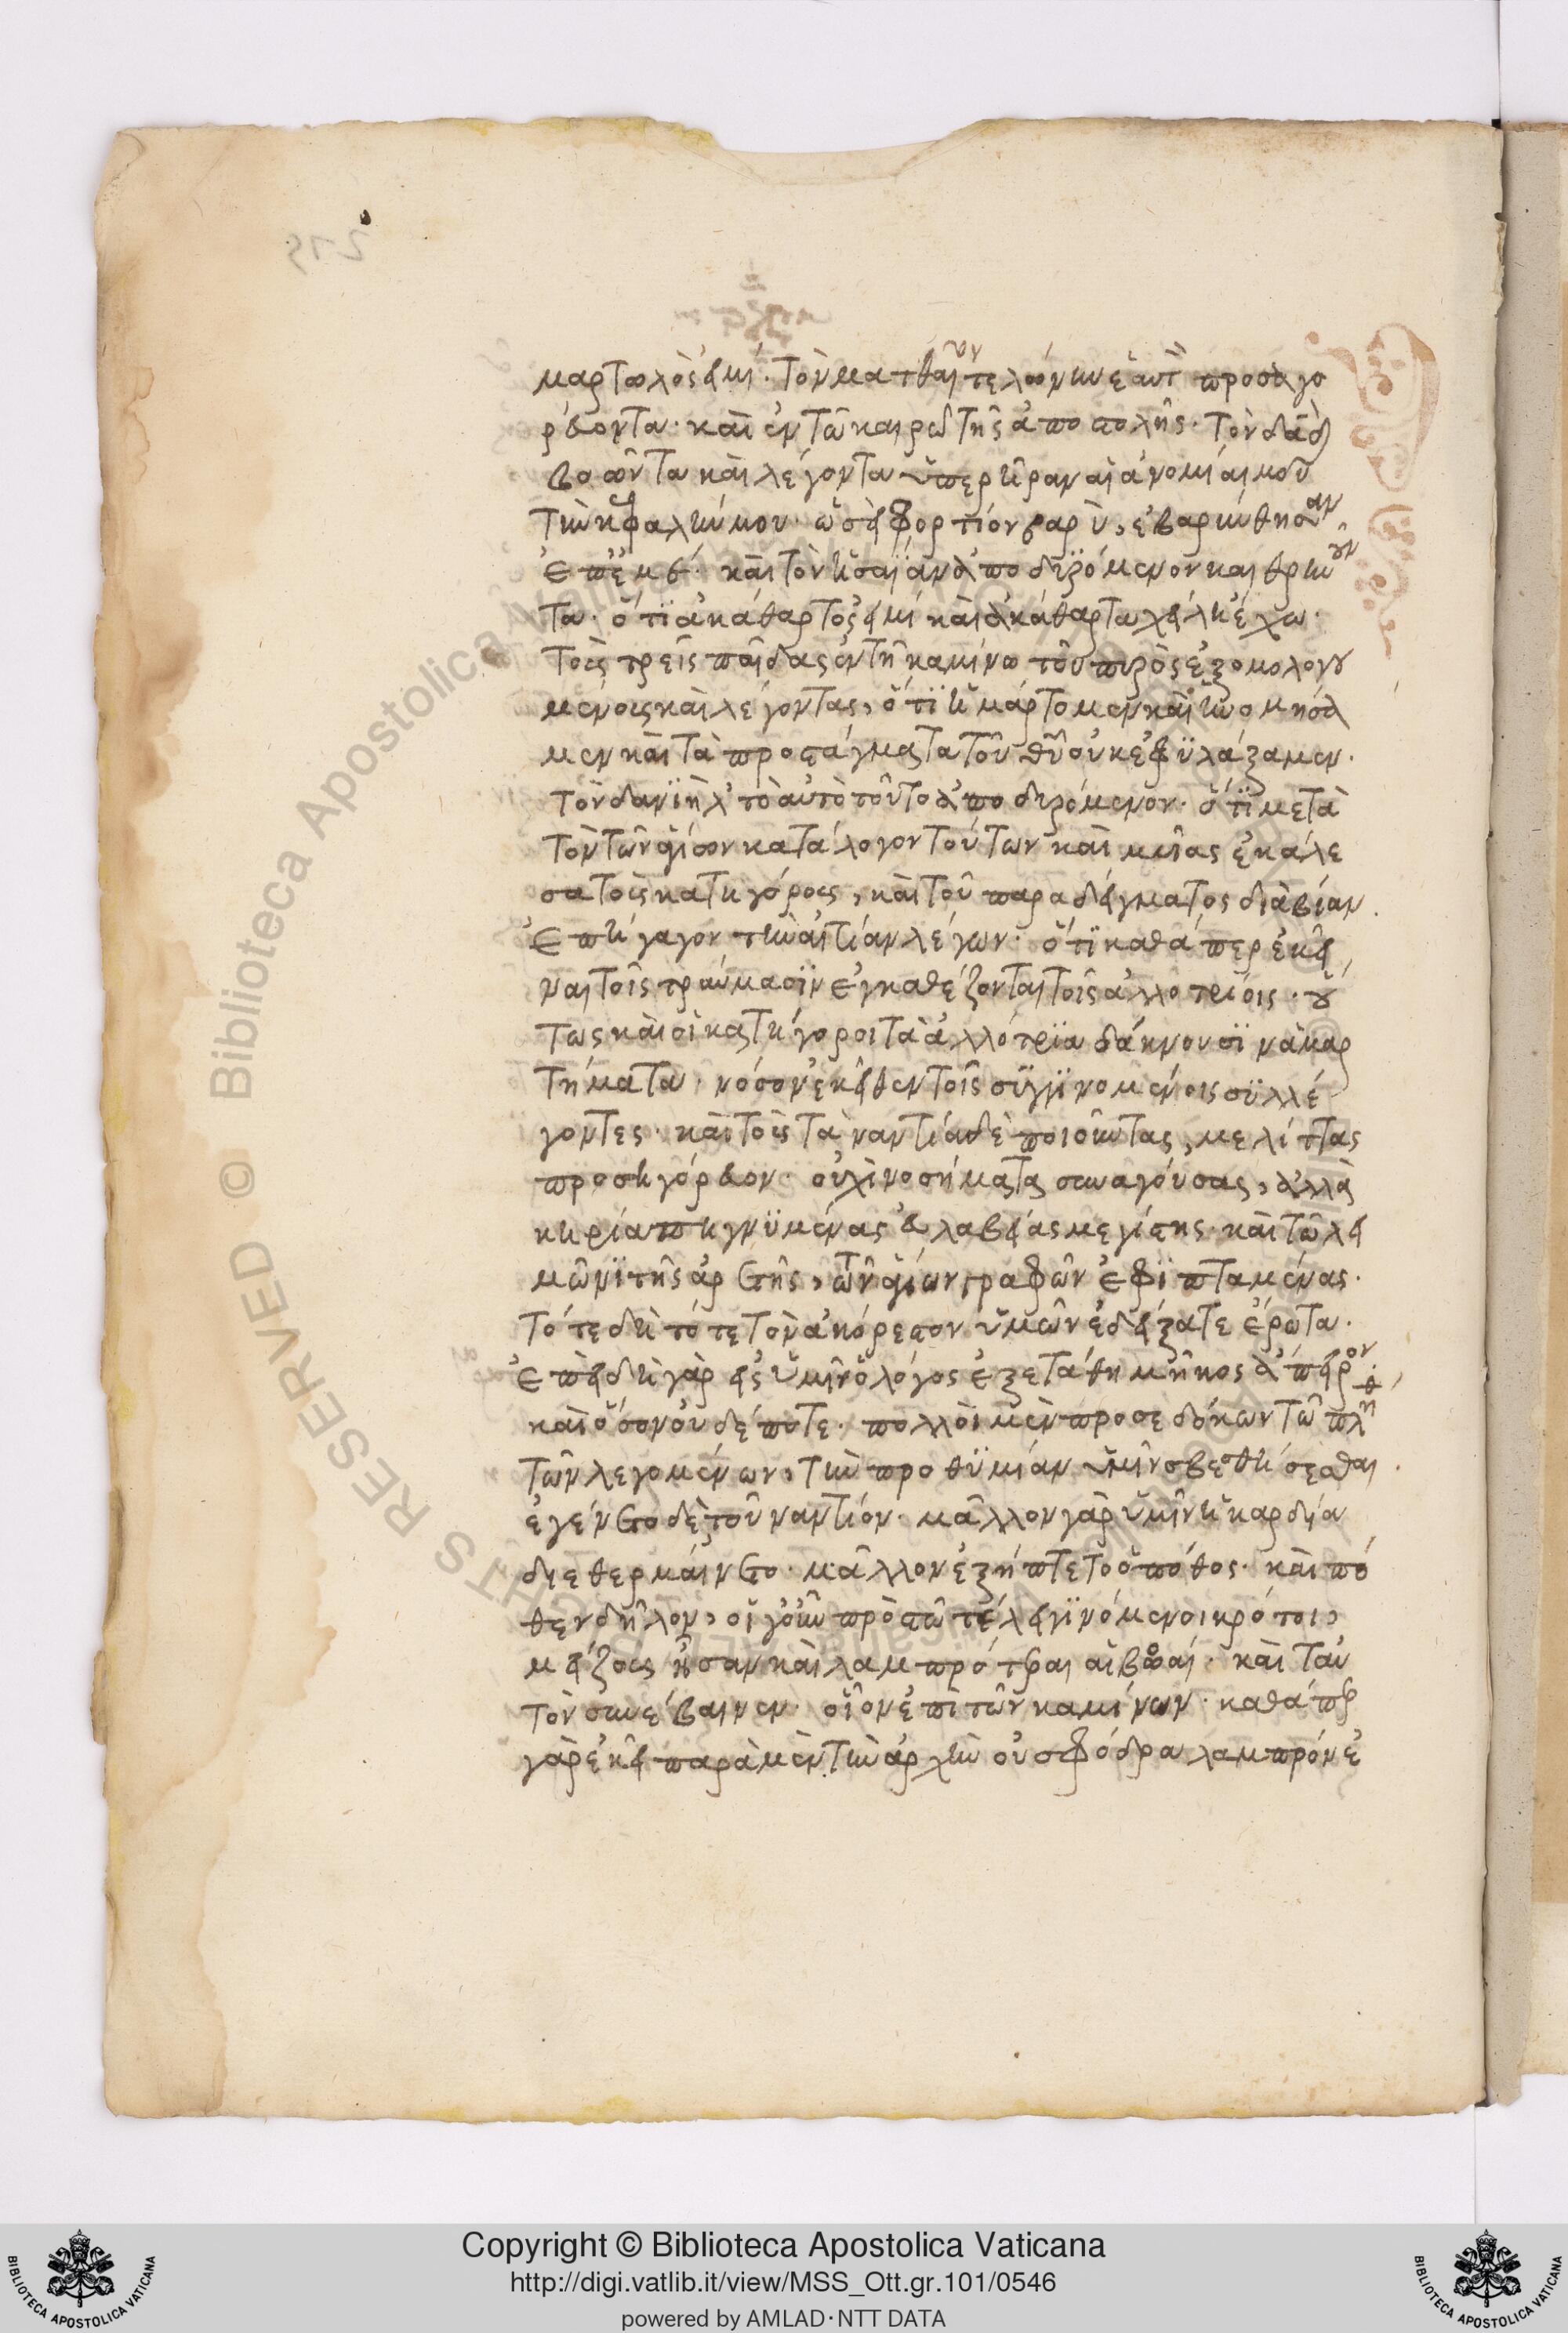 μαρτωλός εἰμι· τὸν ματθαῖον τελώνην ἑαυτὸν προσαγο
ρεύοντα· καὶ ἐν τῶ καιρῶ τῆς ἀποστολῆς· τὸν δαδ
βοῶντα καὶ λέγοντα ὑπερῆραν αἱ ἀνομίαι μου
τὴν κεφαλήν μου· ὡσεὶ φορτίον βαρὺ, ἐβαρύνθησαν
ἐπ' ἐμέ· καὶ τὸν ἡσαΐαν ἀποδυρόμενον καὶ θρηνοῦν
τα· ὅτι ἀκάθαρτος εἰμί καὶ ἀκάθαρτα χείλη ἔχω·
τοὺς τρεῖς παῖδας ἐν τῆ καμίνω τοῦ πυρὸς ἐξομολογου
μένους καὶ λέγοντας, ὅτι ἡμάρτομεν καὶ ἠνομήσα
μεν καὶ τὰ προστάγματα τοῦ θῦ οὐκ ἐφυλάξαμεν.
τὸν δανιὴλ τὸ αὐτὸ τοῦτο ἀποδυρόμενον· ὅτι μετὰ
τὸν τῶν ἁγίων κατάλογον τούτων καὶ μυίας ἐκάλε
σα τοὺς κατηγόρους, καὶ τοῦ παραδείγματος διὰ βίαν
ἐπήγαγον τὴν αἰτίαν λέγων· ὅτι καθάπερ ἐκεῖ
ναι τοῖς τραύμασιν ἐγκαθέζονται τοῖς ἀλλοτρίοις· οὕ
τως καὶ οἱ κατήγοροι τὰ ἀλλότρια δάκνουσιν ἁμαρ
τήματα, νόσον ἐκεῖθεν τοῖς συγγινομένοις συλλέ
γοντες· καὶ τοὺς τἀναντία δὲ ποιοῦντας, μελίττας
προσηγόρευον· οὐχὶ νοσήματα συναγούσας, ἀλλὰ
κηρία πηγνυμένας εὐλαβείας μεγίστης· καὶ τῶ λει
μῶνι τῆς ἀρετῆς, τῶν ἁγίων γραφῶν ἐφιπταμένας·
τότε δὴ τότε τὸν ἀκόρεστον ὑμῶν ἐδείξατε ἔρωτα·
ἐπειδὴ γὰρ εἰς ὑμῖν ὁ λόγος ἐξετάθη μῆκος ἄπειρον·
καὶ ὅσον οὐδέποτε· πολλοὶ μὲν προσεδόκων τῶ πλήθ
τῶν λεγομένων, τὴν προθυμίαν ὑμῖν σβεσθήσεσθαι·
ἐγένετο δὲ τοὐναντίον· μᾶλλον γὰρ ὑμῖν ἡ καρδία
διεθερμαίνετο· μᾶλλον ἐξήπτετο ὁ πόθος· καὶ πό
θεν δῆλον, οἱ γοῦν πρὸς τῶ τέλει γινόμενοι κρότοι,
μείζους ἦσαν καὶ λαμπρότεραι αἱ βοαί· καὶ ταυ
τὸν συνέβαινεν· οἷον ἐπὶ τῶν καμίνων· καθάπερ
γὰρ ἐκεῖ παρὰ μὲν τὴν ἀρχὴν οὐ σφόδρα λαμπρόν ἐ
Copyright © Biblioteca Apostolica Vaticana
http://digi.vatlib.it/view/MSS_Ott.gr.101/0546
powered by AMLAD·NTT DATA